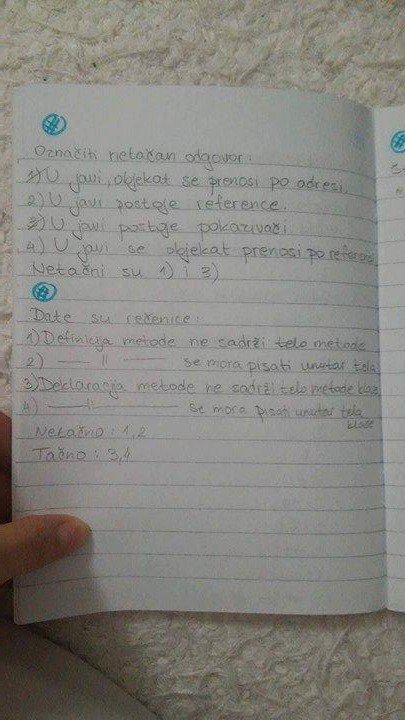 #
Označiti netačan odgovor:
1) U javi, objekat se prenosi po adresi.
2) U javi postoje reference.
3) U javi postoje pokazivači.
4) U javi se objekat prenosi po referenci
Netačni su 1) i 3)
#
Date su rečenice:
1) Definicija metode ne sadrži telo metode
2) —— 11 —— se mora pisati unutar tela
3) Deklaracija metode ne sadrži telo metode
4) —— 11 —— se mora pisati unutar tela
klase
Netačno: 1,2
Tačno: 3,4